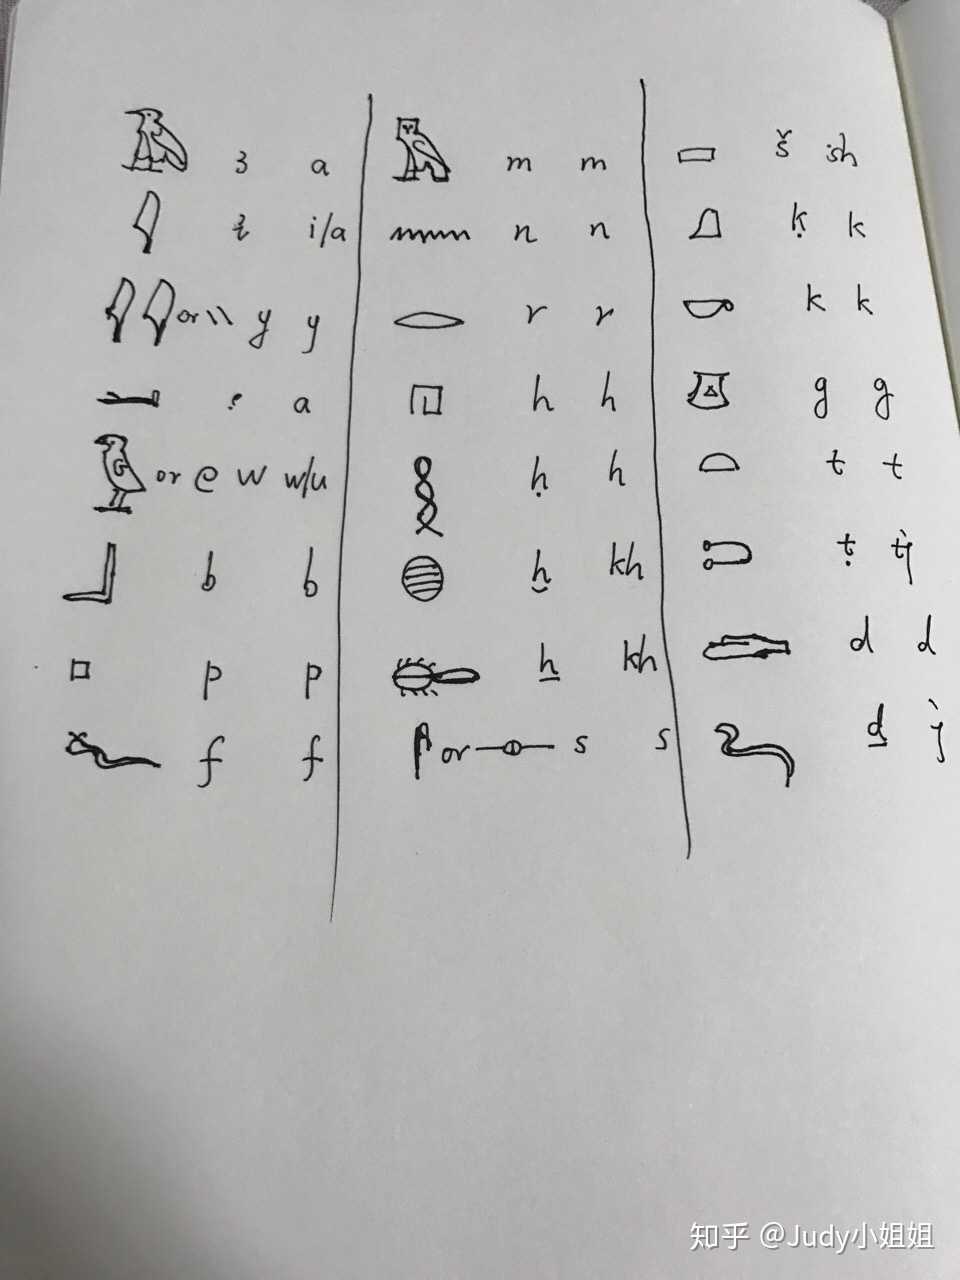 ꜣ a
i/a
or \\ y y
a
or w w/u
b b
p p
f f
m m
n n
r r
h h
ḥ h
ḫ kh
ẖ kh
or s s
š sh
ḳ k
k k
g g
t t
ṭ tj
d d
ḏ j
知乎 @Judy小姐姐